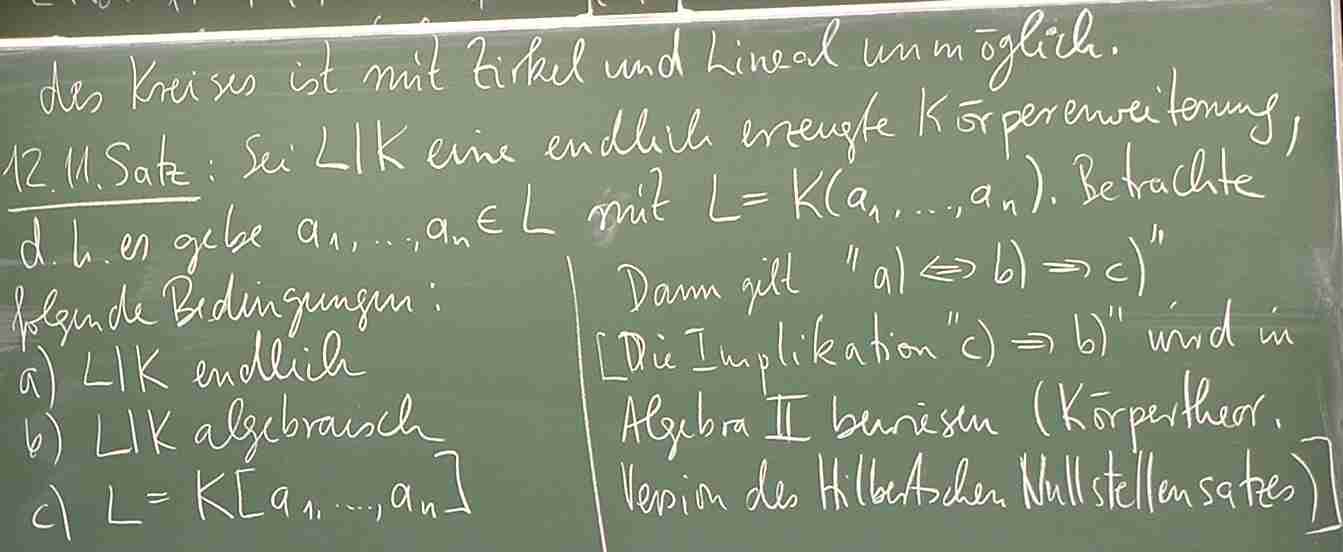 des Kreises ist mit Zirkel und Lineal unmöglich.
12.11. Satz: Sei L|K eine endlich erzeugte Körpererweiterung,
d.h. es gebe a₁, ..., aₙ ∈ L mit L = K(a₁, ..., aₙ). Betrachte
folgende Bedingungen:
a) L|K endlich
b) L|K algebraisch
c) L = K[a₁, ..., aₙ]
Dann gilt "a) ⇔ b) ⇒ c)"
[Die Implikation "c) ⇒ b)" wird in
Algebra II bewiesen (Körpertheor.
Version des Hilbertschen Nullstellensatzes)]